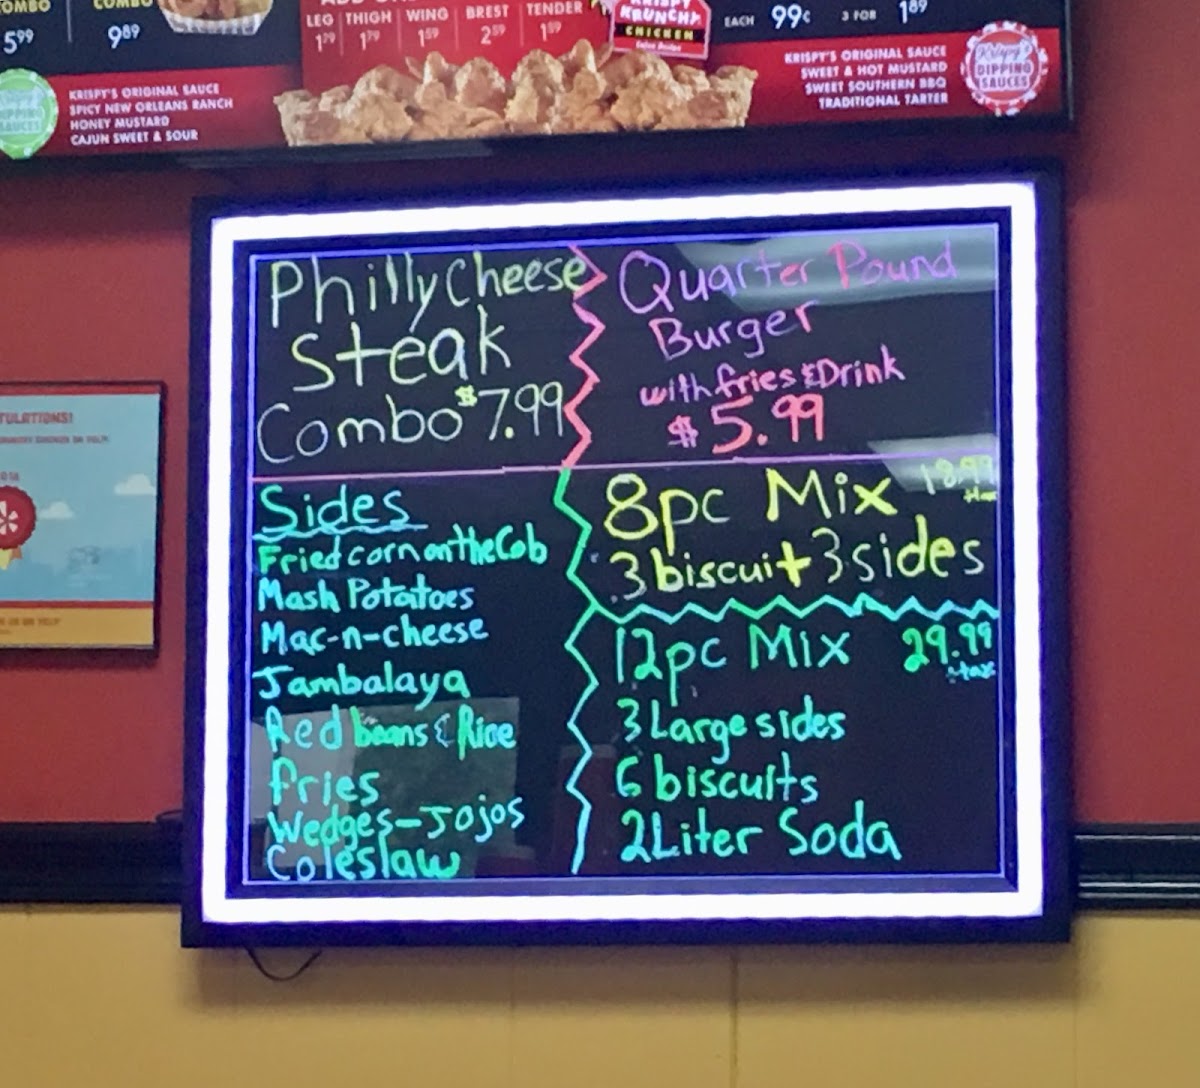 COMBO
5⁹⁹
COMBO
9⁸⁹
KRISPY'S ORIGINAL SAUCE
SPICY NEW ORLEANS RANCH
HONEY MUSTARD
CAJUN SWEET & SOUR
LEG THIGH WING BREST TENDER
1⁷⁹ 1⁷⁹ 1⁵⁹ 2⁵⁹ 1⁵⁹
KRISPY
KRUNCHY
CHICKEN
EACH 99¢ 3 FOR 1⁸⁹
KRISPY'S ORIGINAL SAUCE
SWEET & HOT MUSTARD
SWEET SOUTHERN BBQ
TRADITIONAL TARTER
Krispy's
DIPPING
SAUCES
Philly Cheese
Steak
Combo $7.99
Quarter Pound
Burger
with fries & Drink
$5.99
Sides
Fried corn on the Cob
Mash Potatoes
Mac-n-cheese
Jambalaya
Red beans & Rice
fries
Wedges-Jojos
Coleslaw
8pc Mix 18.99
+tax
3 biscuit + 3 sides
12pc Mix 29.99
+tax
3 Large sides
6 biscuits
2 Liter Soda